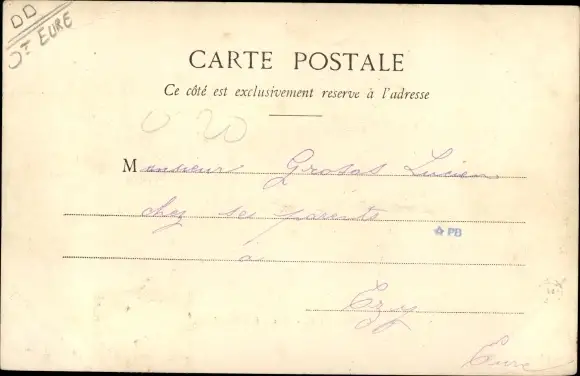 DT EURE
CARTE POSTALE
Ce côté est exclusivement reserve à l'adresse
0 20
Monsieur Grosos Lucien
chez ses parents
PB
à
Ezy
Eure